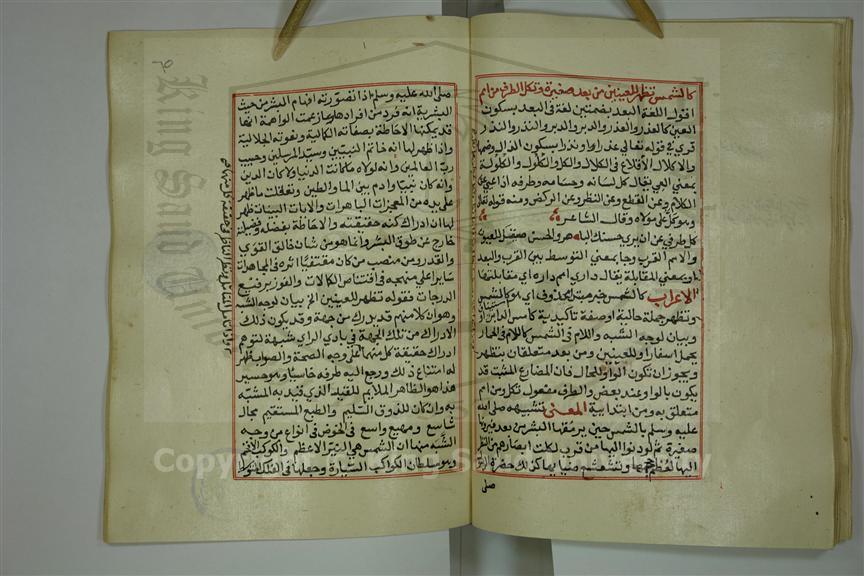 كالشمس تظهر للعينين من بعد صغيرة وتكل الطرف من امم
اقول اللغة البعد بضمتين لغة في البعد بسكون
العين كالعذر والعذر والدبر والدبر والنذر والنذر
قرئ في قوله تعالى عذرا ونذرا بسكون الذال وضمها
والاكلال الاقلاع في الكلال والكل والكلول والكلولة
بمعنى العي يقال كل لسانه وحسامه وطرفه اذا عيى عن
الكلام وعن القطع وعن النظر وعن الركض ومنه قوله تعالى
وهو كل على مولاه وقال الشاعر
كل طرفي عن ان يرى حسنك هو والحسن صيقل للعيون
والامم القرب وجا بمعنى التوسط بين القرب والبعد
او بمعنى المقابلة يقال داري امم داره اي مقابلتها
الاعراب كالشمس خبر مبتدا محذوف اي هو كالشمس
وتظهر جملة حالية او صفة تأكيدية كامس الدابر او
وبيان لوجه الشبه واللام في الشمس كاللام في الحمار
يحمل اسفارا وللعينين ومن بعد متعلقان بتظهر
ويجوز ان تكون الواو للحال فان المضارع المثبت قد
يكون بالواو عند بعض والطرف مفعول تكل ومن امم
متعلق به ومن ابتدائية المعنى تشبيهه صلى الله
عليه وسلم بالشمس حين يرمقها البشر من بعد فيرونها
صغيرة ثم لو دنوا اليها من قرب لكلت ابصارهم من النظر
اليها لعظم حجمها وتشعشع ضيائها كذلك حضرة
صلى
صلى الله عليه وسلم اذا تصورته افهام البشر من حيث
البشرية انه فرد من افرادها زعمت الواهمة انها
قد يمكنها الاحاطة بصفاته الكمالية ونعوته الجلالية
واذا ظهر لها انه خاتم النبيين وسيد المرسلين وحبيب
رب العالمين وانه لولاه ما كانت الدنيا ولا كان الدين
وانه كان نبيا وادم بين الماء والطين وتعقلت ما ظهر
على يده من المعجزات الباهرات والايات البينات ظهر
لها ان ادراك كنه حقيقته والاحاطة بفضله
خارج عن طوق البشر وانما هو من شان خالق القوى
والقدر ومن منصب من كان مقتفيا اثره في المجاهدات
سايرا على منهجه في اقتناص الكمالات والفوز برفيع
الدرجات فقوله تظهر للعينين الخ بيان لوجه الشبه
وهو ان كلا منهم قد يدرك من جهة وقد يكون ذلك
الادراك من تلك الجهة في بادي الراي شبهة لتوهم
ادراك حقيقة كل منهما على وجه الصحة والصواب ثم ظهر
له امتناع ذلك ورجع اليه طرفه خاسيا وهو حسير
هذا هو الظاهر الملايم للقيد الذي قيد به المشبه
به وان كان للذوق السليم والطبع المستقيم مجال
شاسع ومهيع واسع في الخوض في انواع من وجه
الشبه منها ان الشمس هي النير الاعظم والكوكب الافخم
وهو سلطان الكواكب السيارة وجعلها في الفلك
Copyright © King Saud University
King Saud University